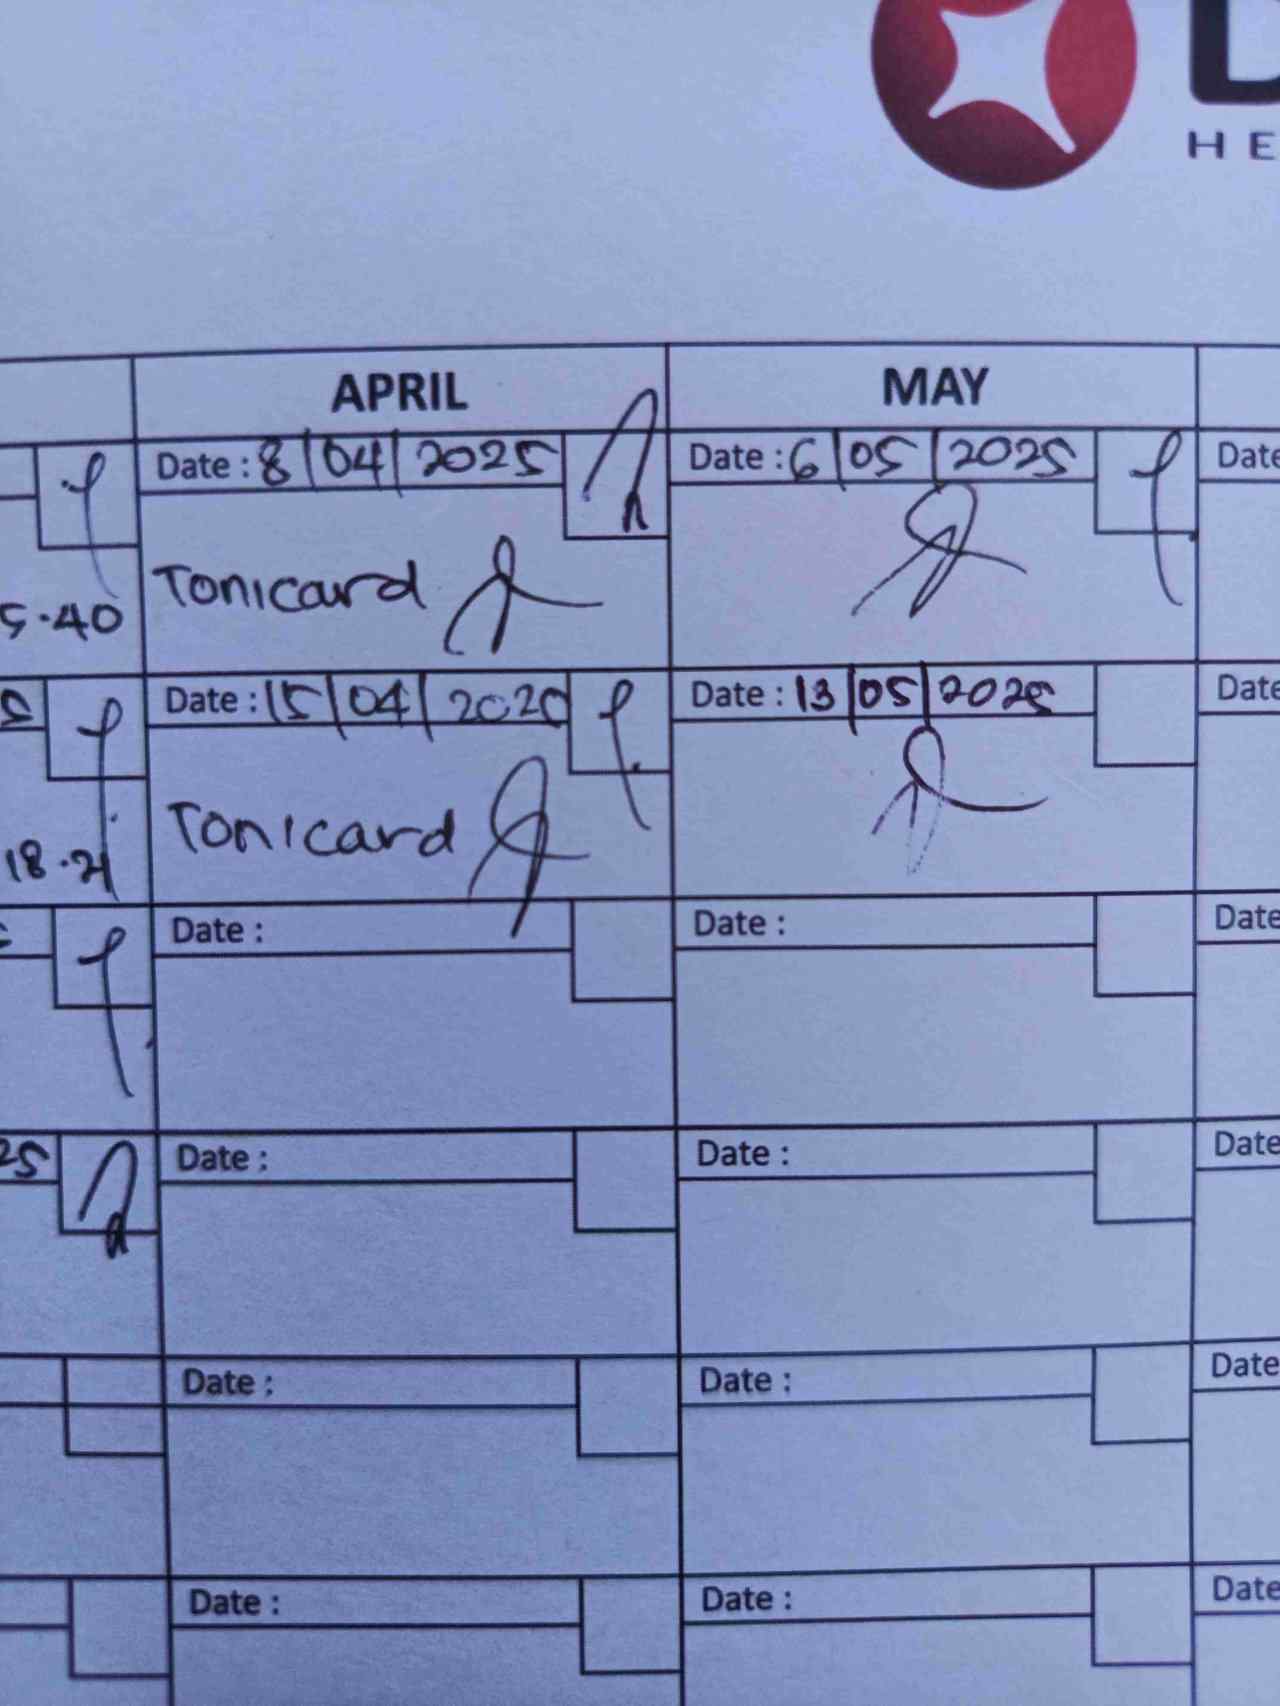 D
HE
APRIL MAY
Date : 8/04/2025 Date : 6/05/2025 Date
Tonicard
5.40
Date : 15/04/2025 Date : 13/05/2025 Date
Tonicard
18.21
Date : Date : Date
25 Date : Date : Date
Date : Date : Date
Date : Date : Date